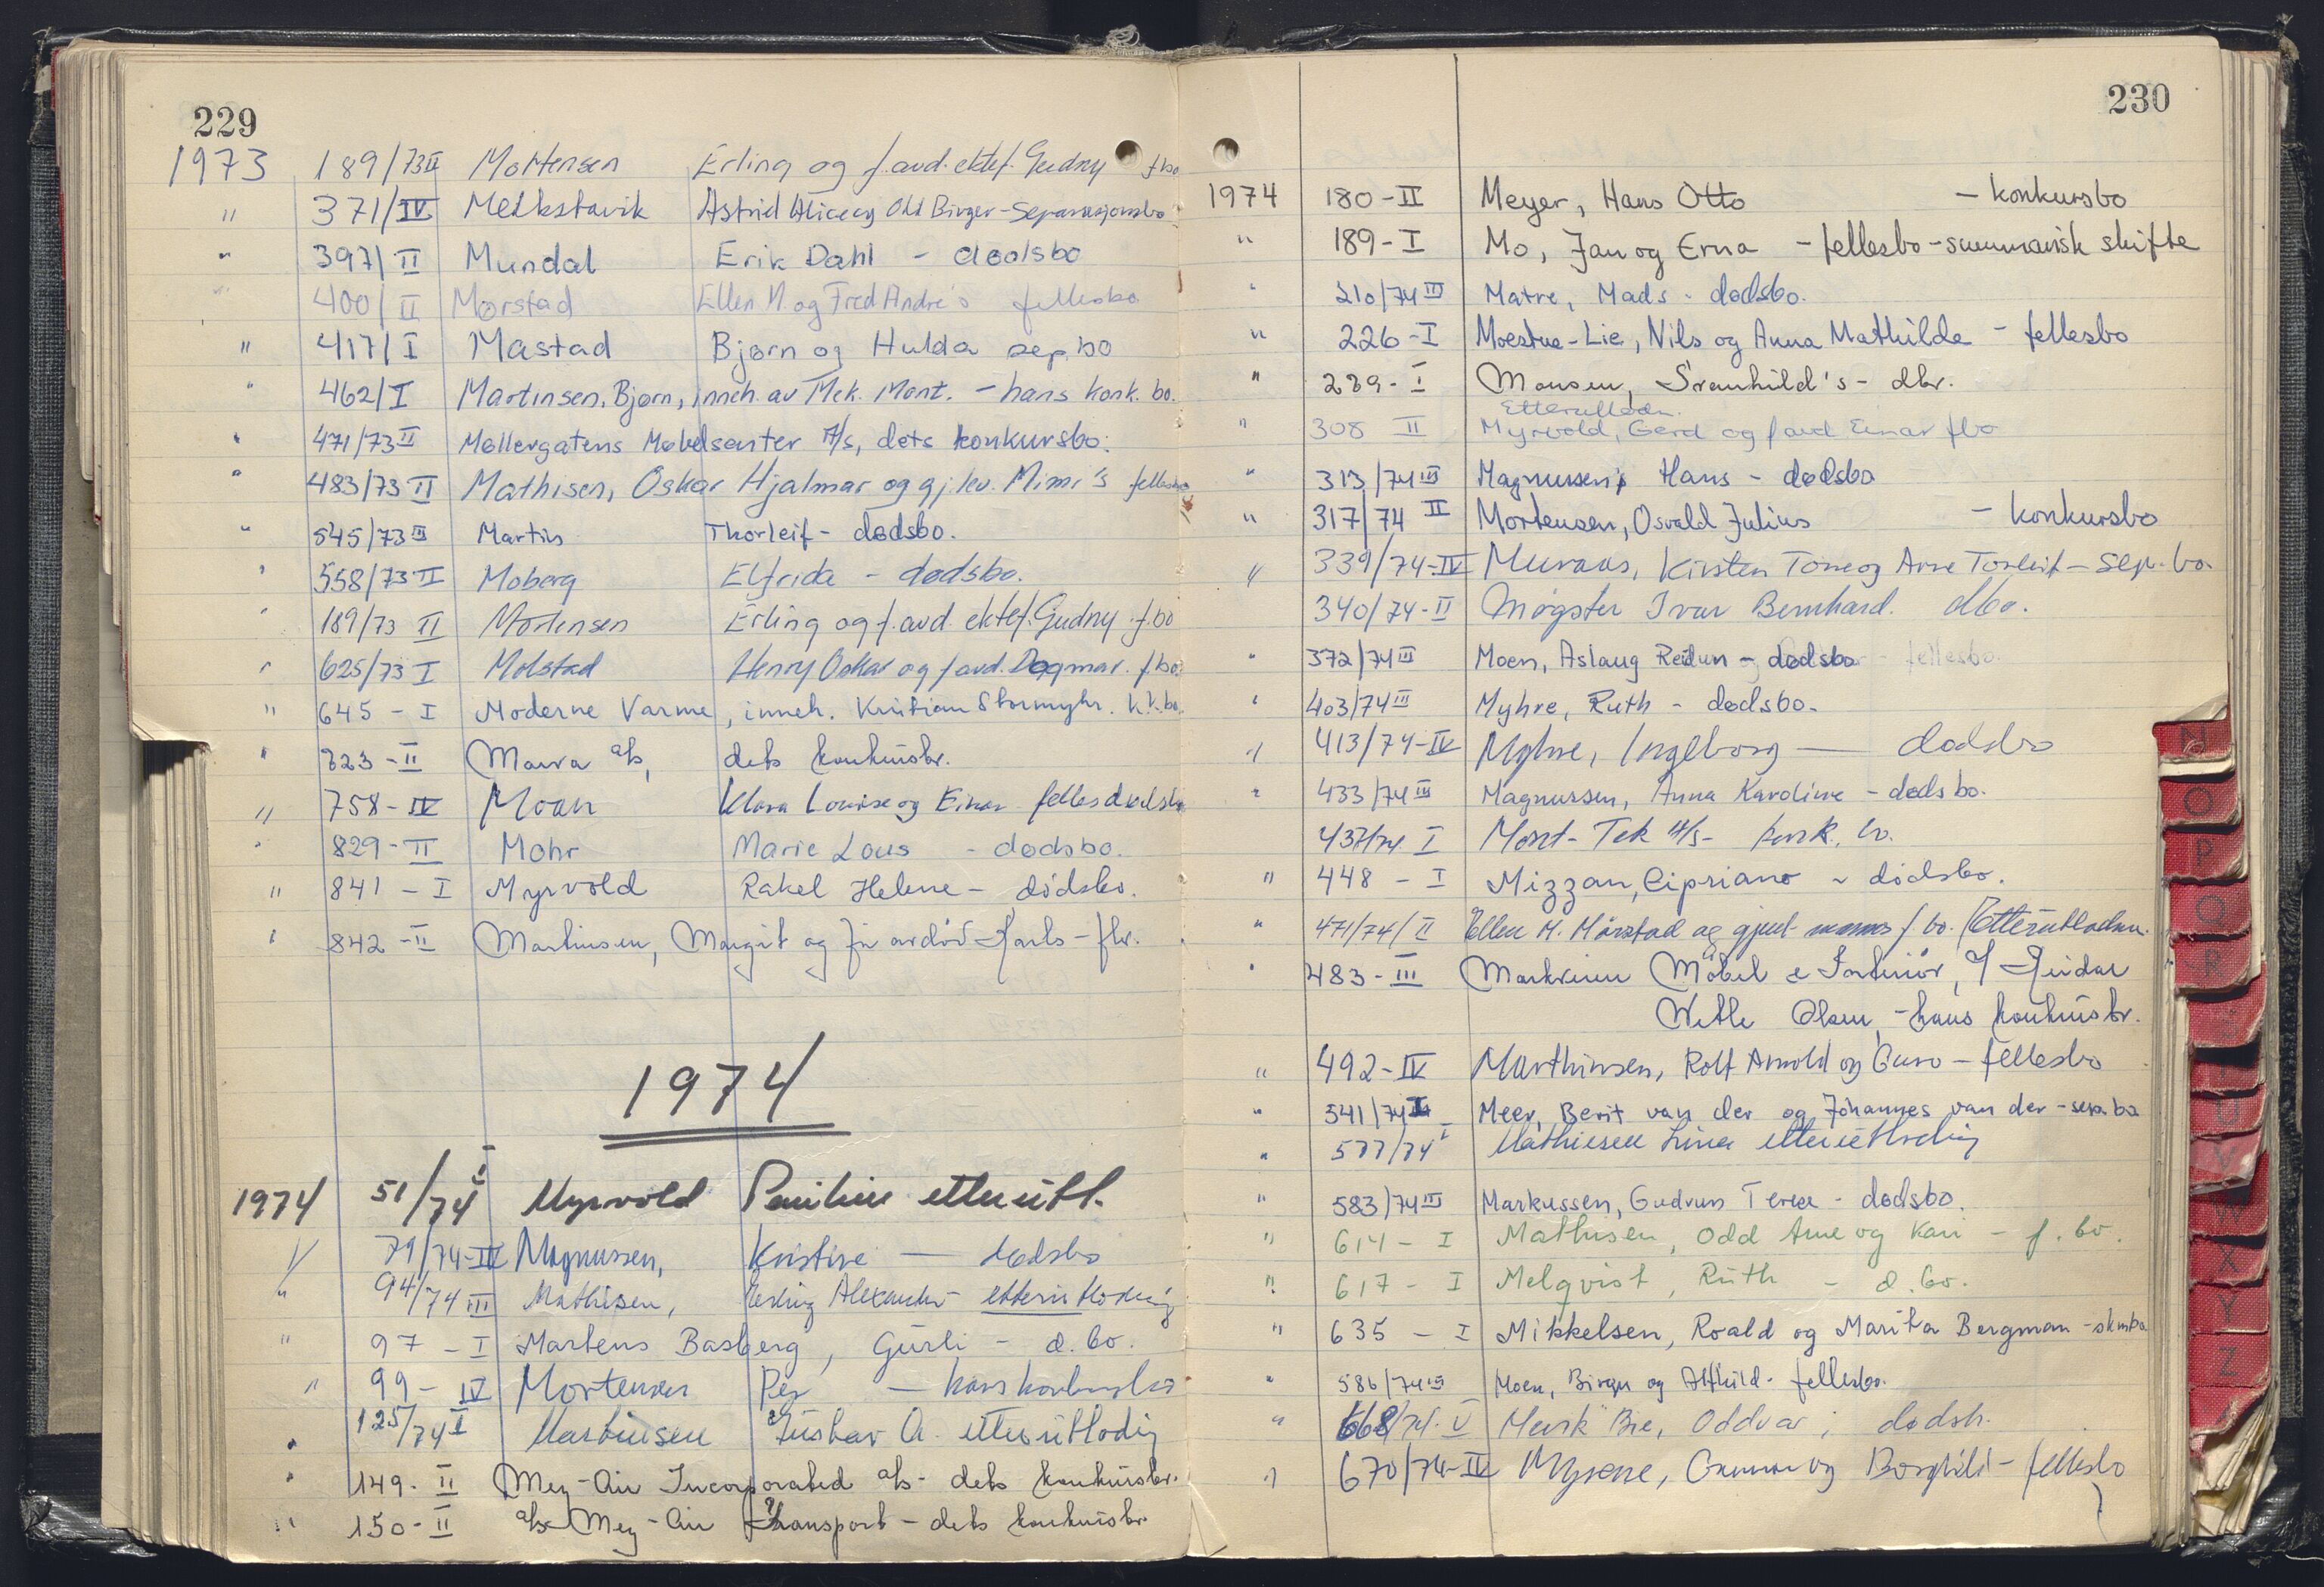 229
1973 189/73 II Mortensen Erling og f.avd. ektef. Gudny f.bo
" 371/IV Melkstavik Astrid Alice og Odd Birger - Separasjonsbo
" 397/II Mundal Erik Dahl - dødsbo
" 400/II Mørstad Ellen M. og Fred André's fellesbo
" 417/I Mastad Bjørn og Hulda sep.bo
" 462/I Martinsen, Bjørn, inneh. av Mek. Mont. - hans konk. bo.
" 471/73 II Møllergatens Møbelsenter A/s, dets konkursbo.
" 483/73 II Mathisen, Oskar Hjalmar og gj.lev. Mimi's fellesbo
" 545/73 III Martin Thorleif - dødsbo.
" 558/73 II Moberg Elfrida - dødsbo.
" 189/73 II Mortensen Erling og f.avd. ektef. Gudny f.bo
" 625/73 I Molstad Henry Oskar og f.avd. Dagmar. f.bo
" 645 - I Moderne Varme, inneh. Kristian Stormyhr. k.k.bo.
" 723 - II Mava a/s, dets konkursbo.
" 758 - IV Moan Klara Louise og Einar fellesdødsbo
" 829 - II Mohr Marie Lous - dødsbo.
" 841 - I Myrvold Rakel Helene - dødsbo.
" 842 - II Martinsen, Margit og før avdød Karls - fbo.
1974
1974 51/74 I Myrvold Pauline etterutl.
" 79/74-IV Magnussen, Kristine - dødsbo
" 94/74 III Mathisen, Erling Alexander etterutlodning
" 97 - I Martens Basberg, Gurli - d. bo.
" 99 - IV Mortensen Per - hans konkursbo
" 125/74 I Martinsen Gustav A. etterutlodng
" 149 - II Mey-Air Incorporated a/s - dets konkursbo.
" 150 - II a/s Mey-Air Transport - dets konkursbo.
230
1974 180-II Meyer, Hans Otto - konkursbo
" 189-I Mo, Jan og Erna - fellesbo - summarisk skifte
" 210/74 III Matre, Mads - dødsbo.
" 226-I Moestue-Lie, Nils og Anna Mathilde - fellesbo
" 289-I Monsen, Svanhild's - dbo.
Etterutlodn.
" 308 II Myrvold, Gerd og f avd Einar fbo
" 313/74 III Magnussen, Hans - dødsbo
" 317/74 II Mortensen, Osvald Julius - konkursbo
" 339/74-IV Muraas, Kirsten Tone og Arne Torleif - sep.bo.
" 340/74-II Møgster Ivar Bernhard. dbo.
" 372/74 III Moen, Aslaug Reidun - dødsbo fellesbo
" 403/74 III Myhre, Ruth - dødsbo.
" 413/74-IV Myhre, Ingeborg - dødsbo
" 433/74 III Magnussen, Anna Karoline - dødsbo.
437/74 I Mont-Tek A/s - konk. bo.
" 448 - I Mizzan, Cipriano - dødsbo.
" 471/74/II Ellen M. Mørstad og gjenl. manns f. bo. (Etterutlodn.
" 483-III Markveien Møbel & Interiør, v/ Reidar
Wetle Olsen, - hans konkursbo.
" 492-IV Marthinsen, Rolf Arnold og Guro - fellesbo
" 541/74 Meer, Berit van der og Johannes van der - sep.bo
" 577/74 I Mathiesen Lina etterutlodng
" 583/74 III Markussen, Gudrun Terese - dødsbo.
" 614 - I Mathisen, Odd Arne og Kari - f. bo.
" 617 - I Melqvist, Ruth - d. bo.
" 635 - I Mikkelsen, Roald og Marita Bergman - skmbo
" 586/74 III Moen, Birger og Alfhild - fellesbo.
" 668/74. V Merk Bie, Oddvar, dødsb.
" 670/74-IV Myrene, Gunnar og Borghild - fellesbo
N
O
P
Q
R
U
V
W
X
Y
Z